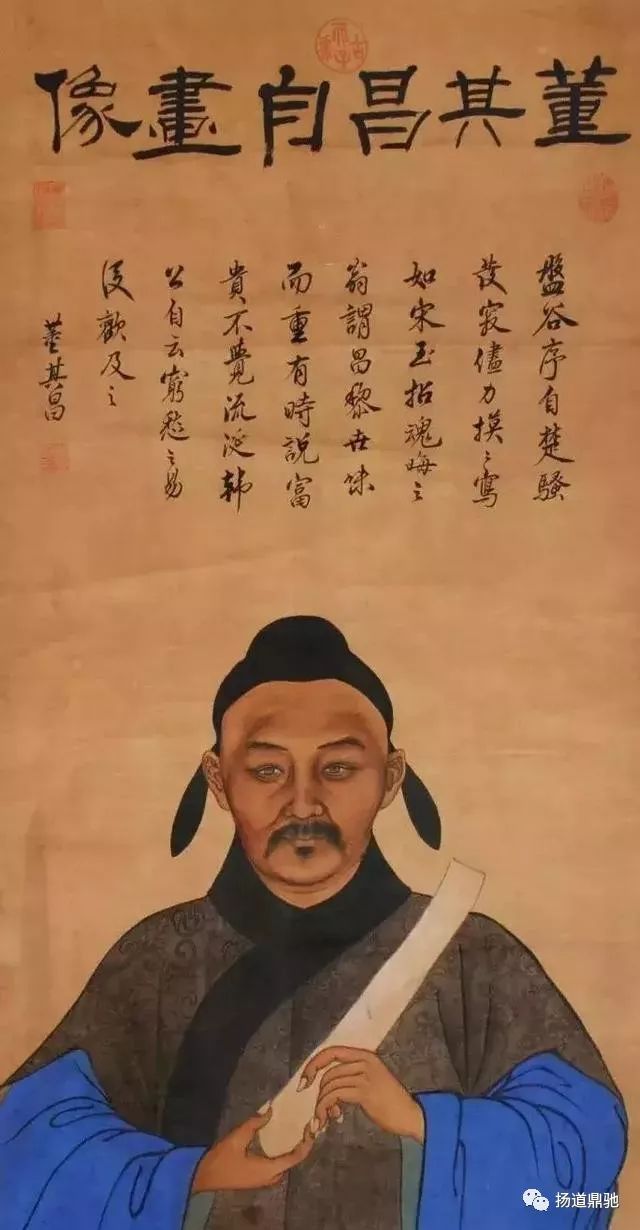 董其昌自畫像
盤谷序自楚騷
寂儘力摸之寫
如宋玉招魂晦之
翁謂昌黎世味
而重有時說富
貴不覺流涎韓
公自云窮愁之易
歡及之
董其昌
扬道鼎驰